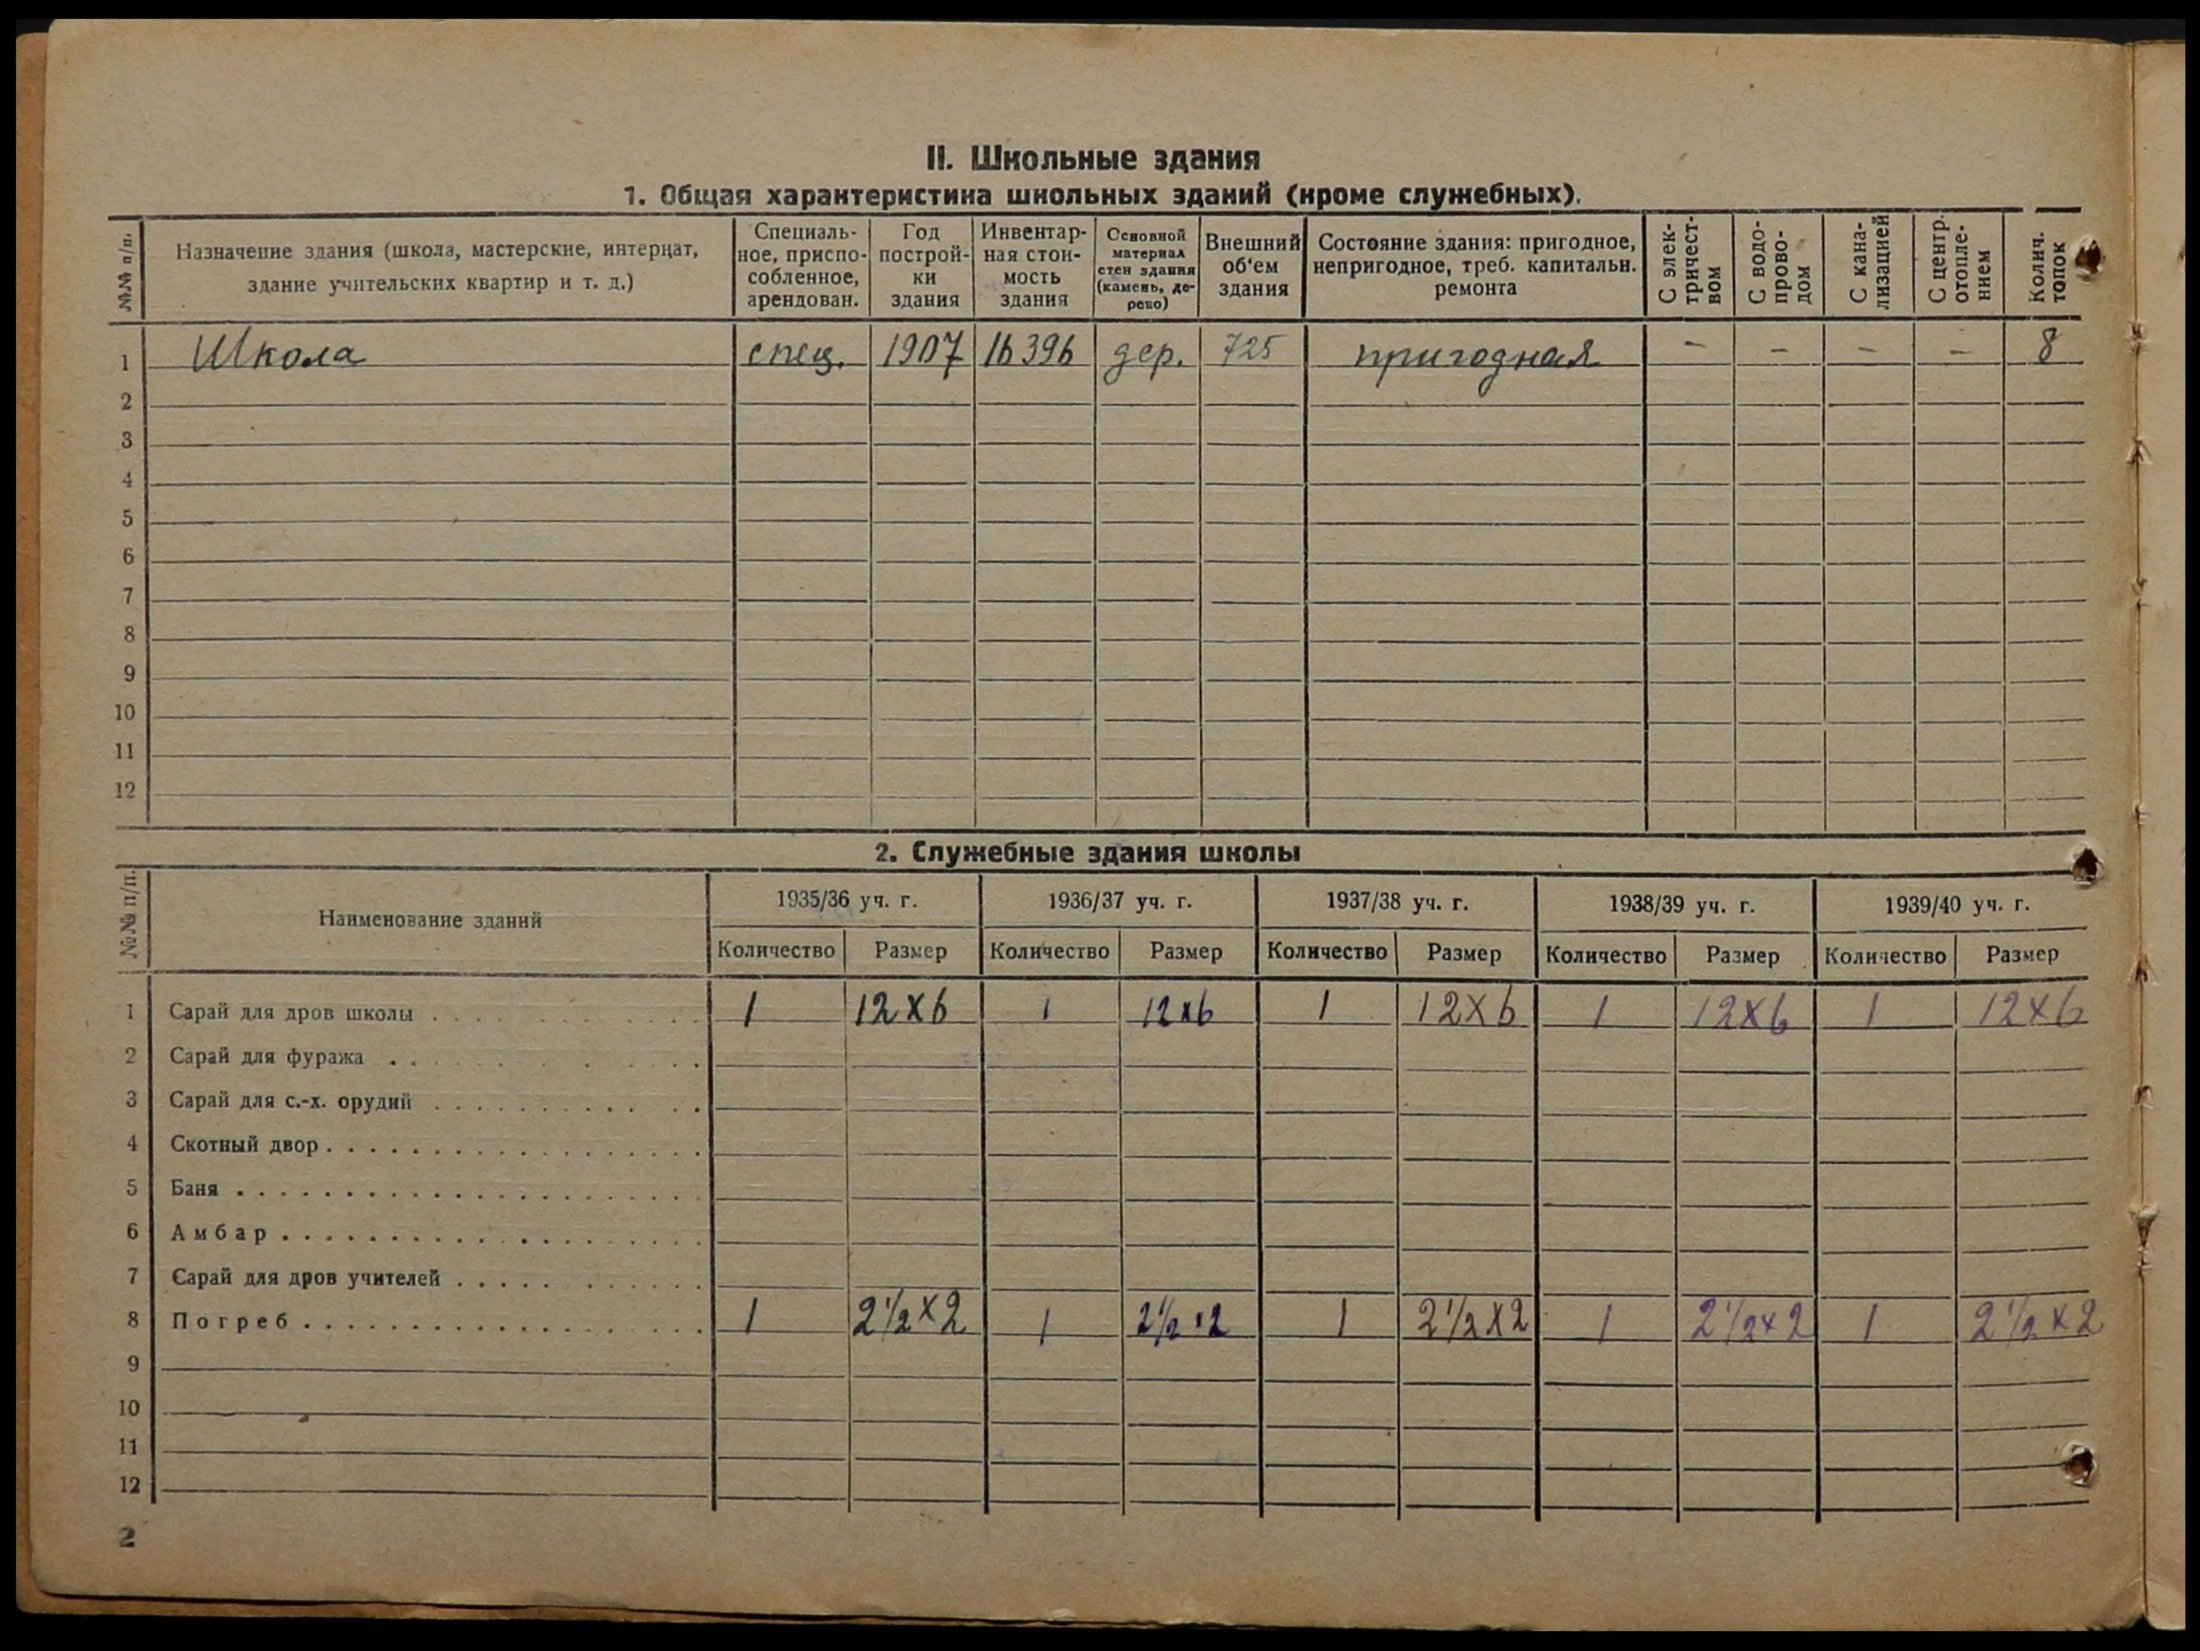 II. Школьные здания
1. Общая характеристика школьных зданий (кроме служебных).
№№ п/п. | Назначение здания (школа, мастерские, интернат, здание учительских квартир и т. д.) | Специальное, приспособленное, арендован. | Год постройки здания | Инвентарная стоимость здания | Основной материал стен здания (камень, дерево) | Внешний об'ем здания | Состояние здания: пригодное, непригодное, треб. капитальн. ремонта | С электричеством | С водопроводом | С канализацией | С центр. отоплением | Колич. топок
1 Школа спец. 1907 16396 дер. 725 пригодная – – – – 8
2
3
4
5
6
7
8
9
10
11
12
2. Служебные здания школы
№№ п/п. | Наименование зданий | 1935/36 уч. г. | 1936/37 уч. г. | 1937/38 уч. г. | 1938/39 уч. г. | 1939/40 уч. г.
Количество | Размер | Количество | Размер | Количество | Размер | Количество | Размер | Количество | Размер
1 Сарай для дров школы 1 12х6 1 12х6 1 12х6 1 12х6 1 12х6
2 Сарай для фуража
3 Сарай для с.-х. орудий
4 Скотный двор
5 Баня
6 Амбар
7 Сарай для дров учителей
8 Погреб 1 2½х2 1 2½х2 1 2½х2 1 2½х2 1 2½х2
9
10
11
12
2